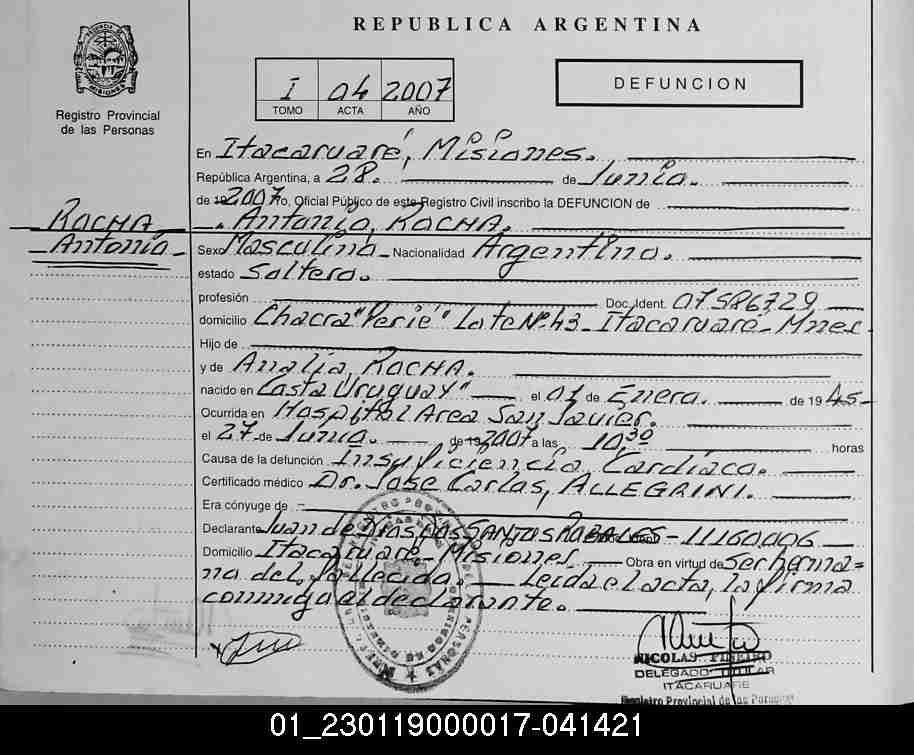 REPUBLICA ARGENTINA
PROVINCIA DE MISIONES
Registro Provincial
de las Personas
I 04 2007
TOMO ACTA AÑO
DEFUNCION
En Itacaruaré, Misiones.
República Argentina, a 28. de Junio.
de 192007 Yo, Oficial Público de este Registro Civil inscribo la DEFUNCION de
ROCHA
Antonio
Antonio, ROCHA.
Sexo Masculino Nacionalidad Argentino.
estado Soltero.
profesión Doc. Ident. 07.586.729
domicilio Chacra "Perié" Lote Nº 43 - Itacaruaré - Mnes
Hijo de
y de Analia, ROCHA.
nacido en Costa Uruguay" el 01 de Enero. de 19 45-
Ocurrida en Hospital Area San Javier.
el 27 de Junio. de 192007 a las 10,30 horas
Causa de la defunción Insuficiencia Cardíaca.
Certificado médico Dr. Jose Carlos, ALLEGRINI.
Era cónyuge de
Declarante Juan de Dios DOS SANTOS - 11160006
Domicilio Itacaruaré - Misiones. Obra en virtud de Ser herma=
no del fallecido. Leida el acta, la firma
conmigo el declarante.
NICOLAS PIÑEIRO
DELEGADO TITULAR
ITACARUARE
Registro Provincial de las Personas
01_230119000017-041421